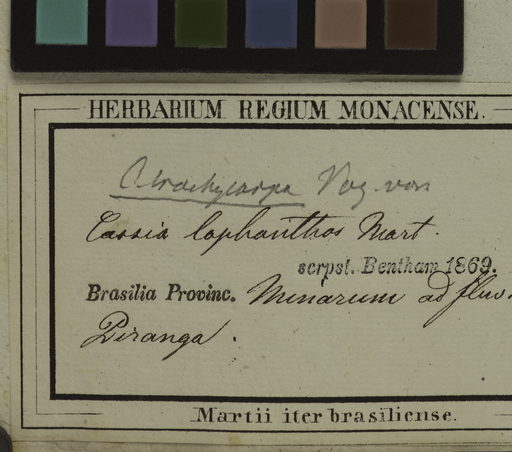 HERBARIUM REGIUM MONACENSE.
C. trachycarpa Vog. var
Cassia lophanthos Mart.
scrpst. Bentham 1869.
Brasilia Provinc. Minarum ad fluv.
Piranga.
Martii iter brasiliense.